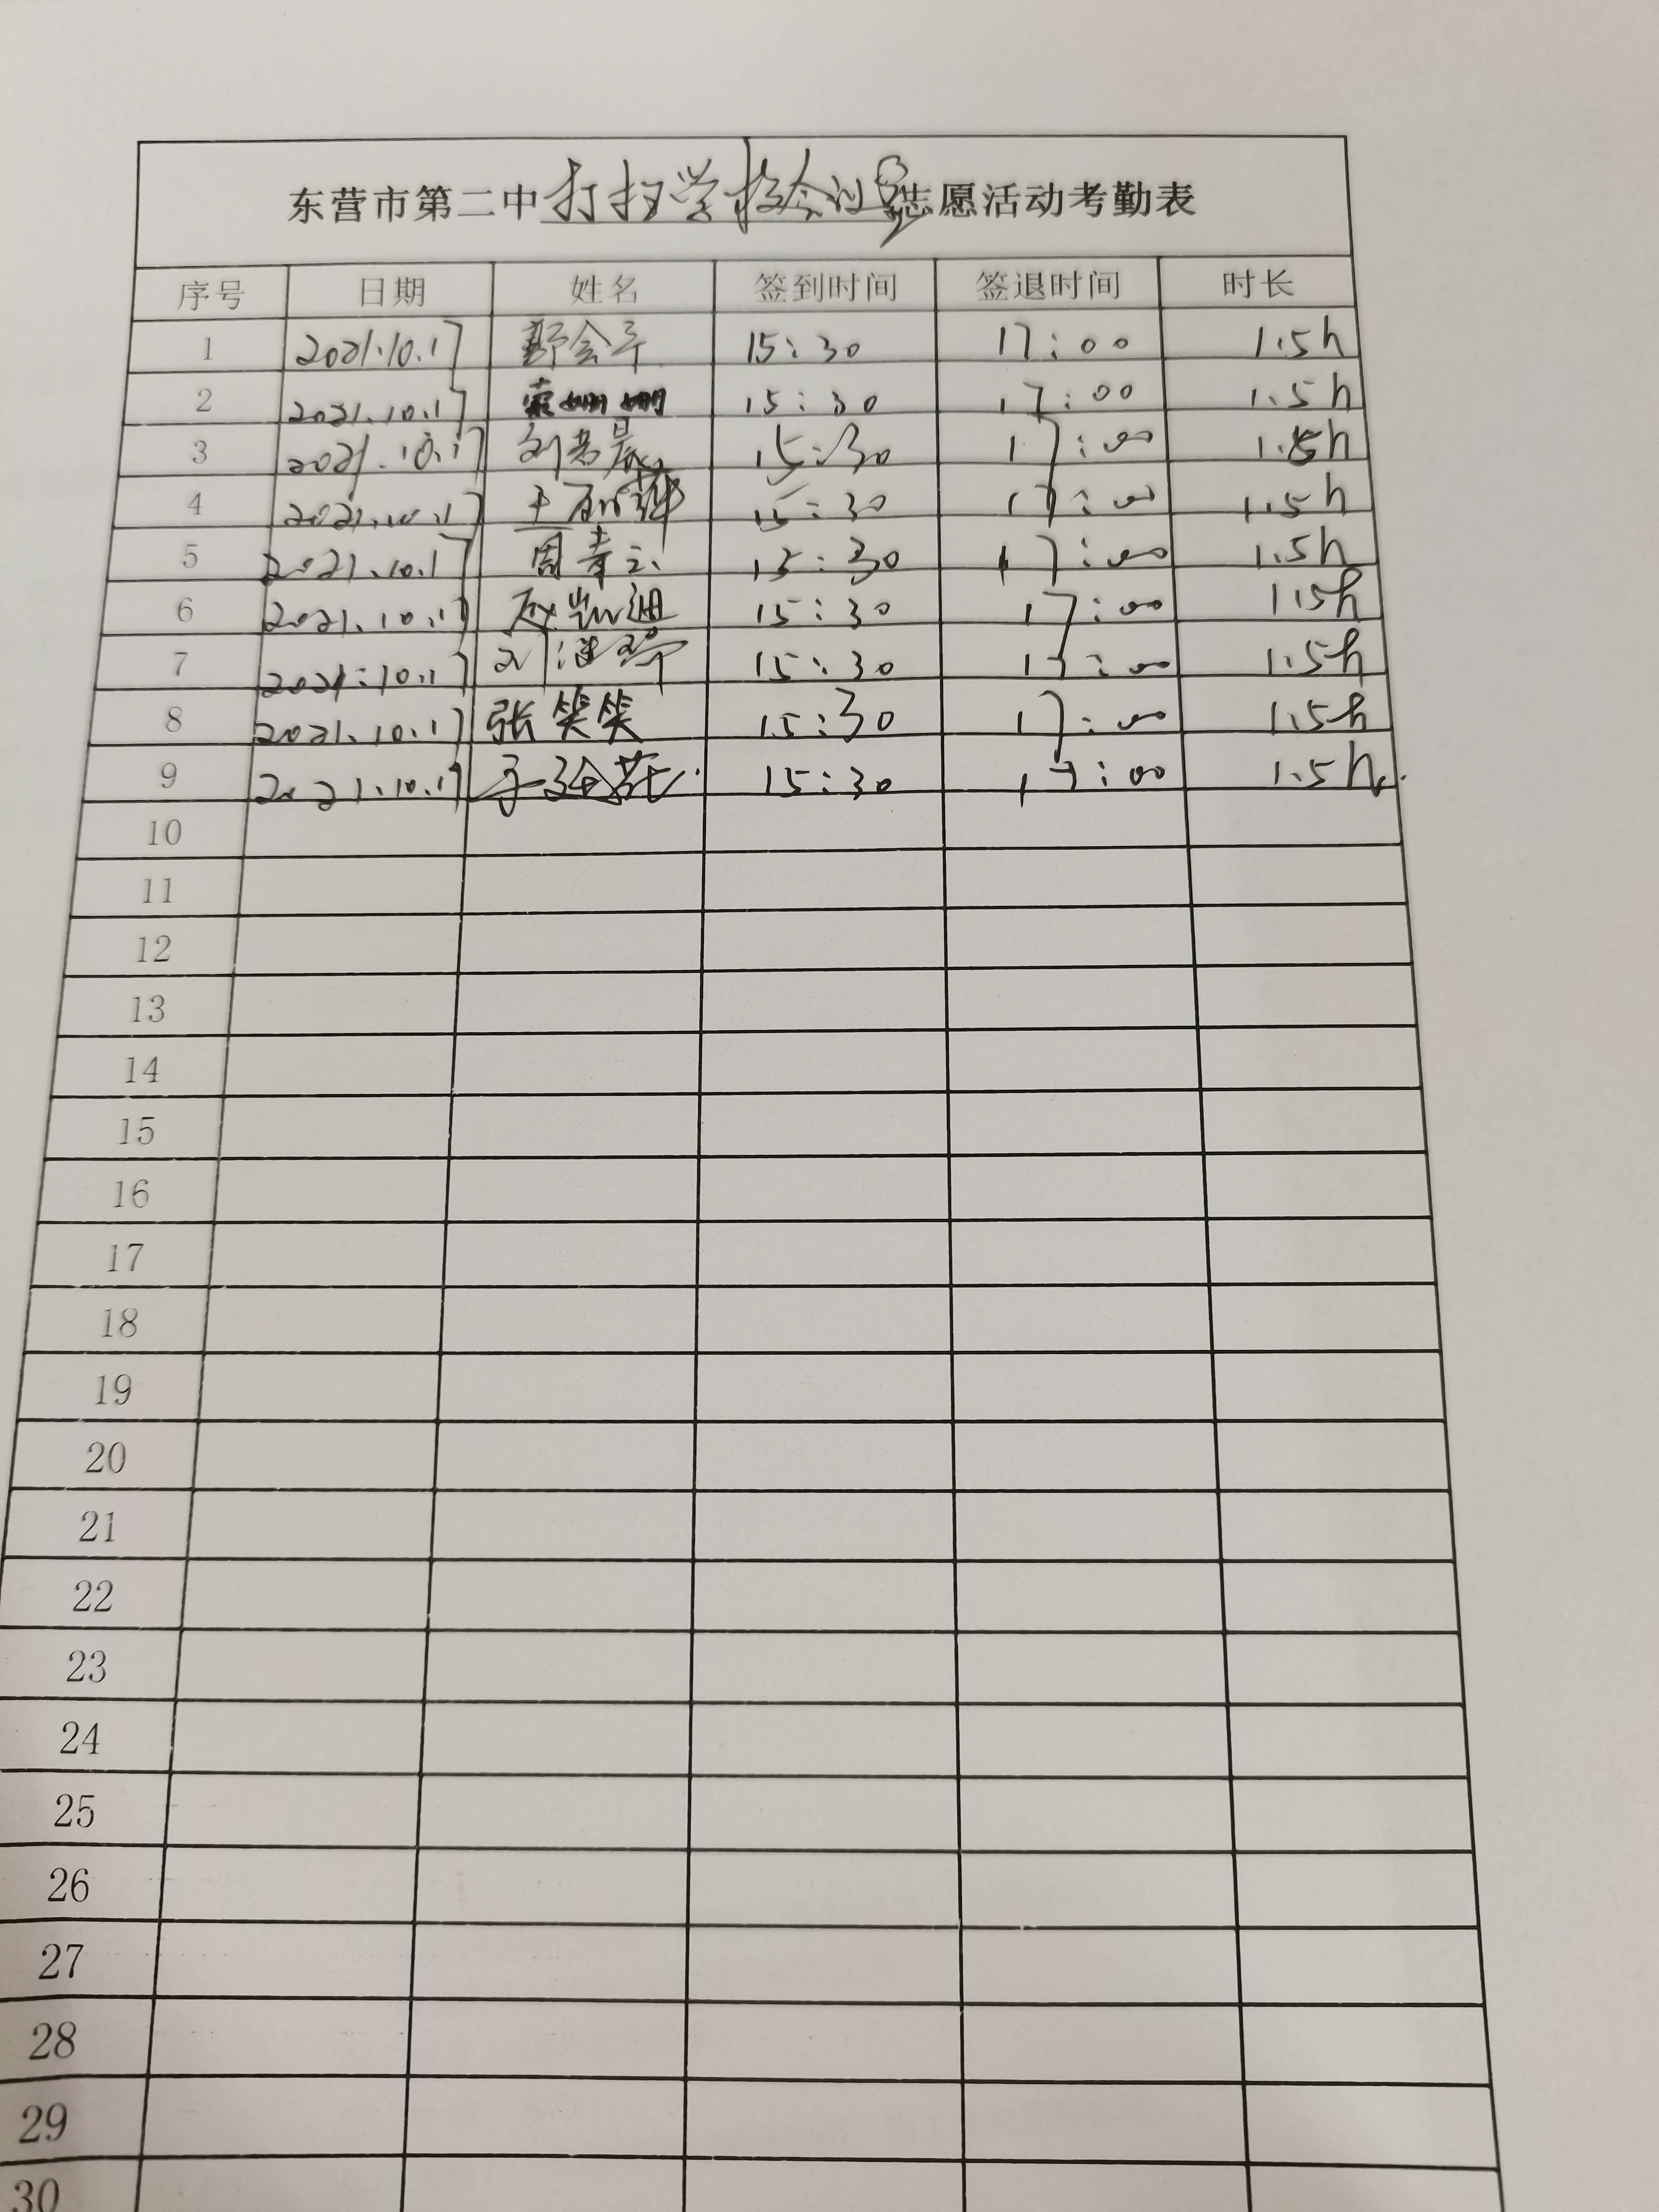 东营市第二中打扫学校会议室志愿活动考勤表
序号 日期 姓名 签到时间 签退时间 时长
1 2021.10.17 15:30 17:00 1.5h
2 2021.10.17 姗姗 15:30 17:00 1.5h
3 2021.10.17 刘若晨 15:30 17:00 1.5h
4 2021.10.17 王 15:30 17:00 1.5h
5 2021.10.17 周青云 15:30 17:00 1.5h
6 2021.10.17 赵凯迪 15:30 17:00 1.5h
7 2021.10.17 刘 15:30 17:00 1.5h
8 2021.10.17 张笑笑 15:30 17:00 1.5h
9 2021.10.17 15:30 17:00 1.5h
10
11
12
13
14
15
16
17
18
19
20
21
22
23
24
25
26
27
28
29
30